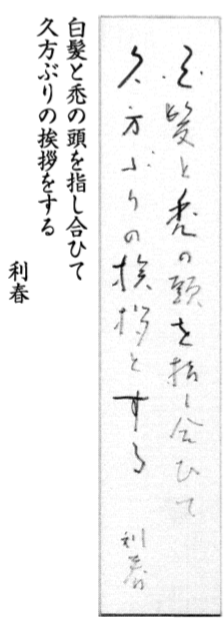 白髪と禿の頭を指し合ひて
久方ぶりの挨拶をする
利春
白髪と禿の頭を指し合ひて
久方ぶりの挨拶をする
利春